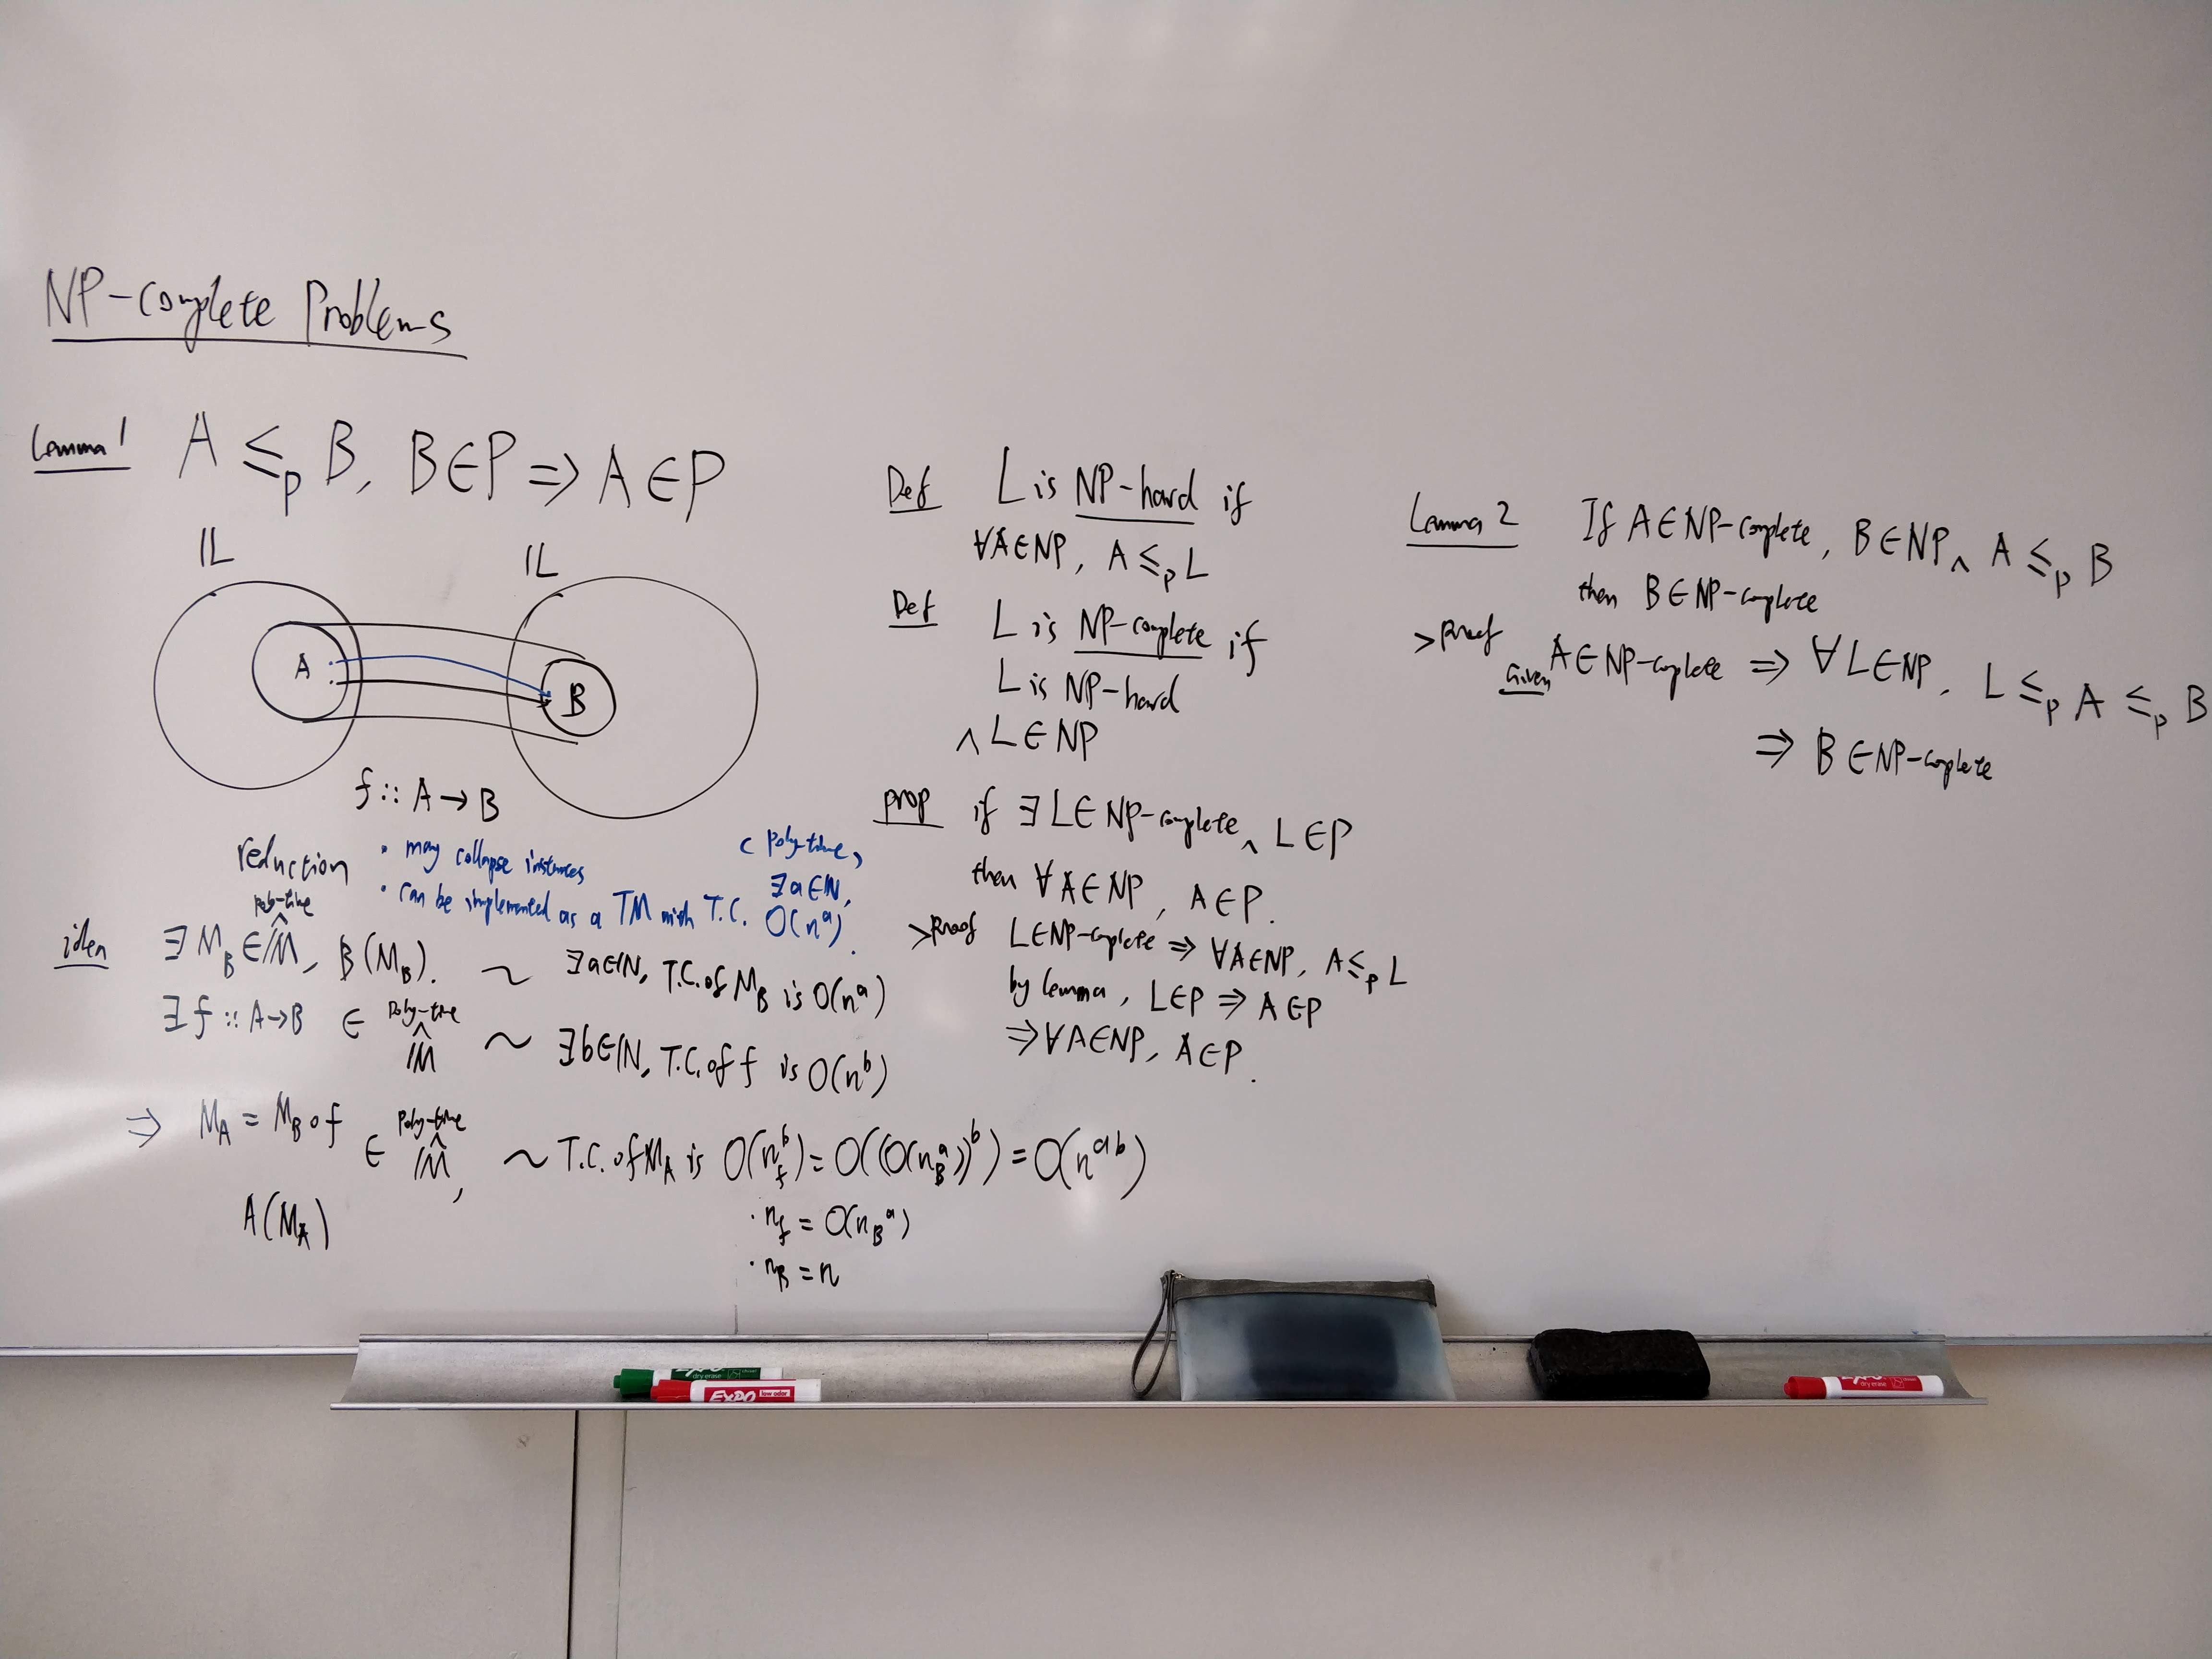 NP-complete Problems
Lemma 1 A ≤p B, B∈P ⇒ A∈P
𝕃 𝕃
A B
f :: A → B
reduction
· may collapse instances
· can be implemented as a TM with T.C. O(nᵃ).
( poly-time,
∃a∈ℕ,
idea ∃ M_B ∈ poly-time 𝕄, B(M_B). ~ ∃a∈ℕ, T.C. of M_B is O(nᵃ)
∃ f :: A→B ∈ poly-time 𝕄 ~ ∃b∈ℕ, T.C. of f is O(nᵇ)
⇒ M_A = M_B∘f ∈ poly-time 𝕄, ~ T.C. of M_A is O(n_fᵇ) = O((O(n_Bᵃ))ᵇ) = O(nᵃᵇ)
A(M_A)
· n_f = O(n_Bᵃ)
· n_B = n
Def L is NP-hard if
∀A∈NP, A ≤p L
Def L is NP-complete if
L is NP-hard
∧ L∈NP
prop if ∃L∈NP-complete ∧ L∈P
then ∀A∈NP, A∈P.
>Proof L∈NP-complete ⇒ ∀A∈NP, A ≤p L
by lemma, L∈P ⇒ A∈P
⇒ ∀A∈NP, A∈P.
Lemma 2 If A∈NP-complete, B∈NP ∧ A ≤p B
then B∈NP-complete
>proof Given A∈NP-complete ⇒ ∀L∈NP, L ≤p A ≤p B
⇒ B∈NP-complete
EXPO
dry erase
EXPO low odor
EXPO
dry erase